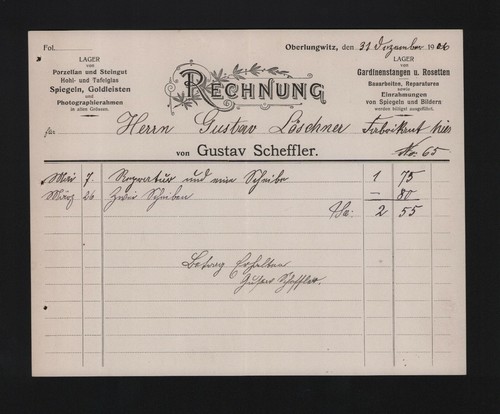 Fol.
Oberlungwitz, den 31. Dezember 1906
LAGER
von
Porzellan und Steingut
Hohl- und Tafelglas
Spiegeln, Goldleisten
und
Photographierahmen
in allen Grössen.
RECHNUNG
LAGER
von
Gardinenstangen u. Rosetten
Bauarbeiten, Reparaturen
sowie
Einrahmungen
von Spiegeln und Bildern
werden billigst ausgeführt.
für Herrn Gustav Löschner Fabrikant hier
von Gustav Scheffler. No. 65
Mai 7. Reparatur und eine Scheibe 1 75
März 26 Zwei Scheiben — 80
Sa: 2 55
Betrag Erhalten
Gustav Scheffler.